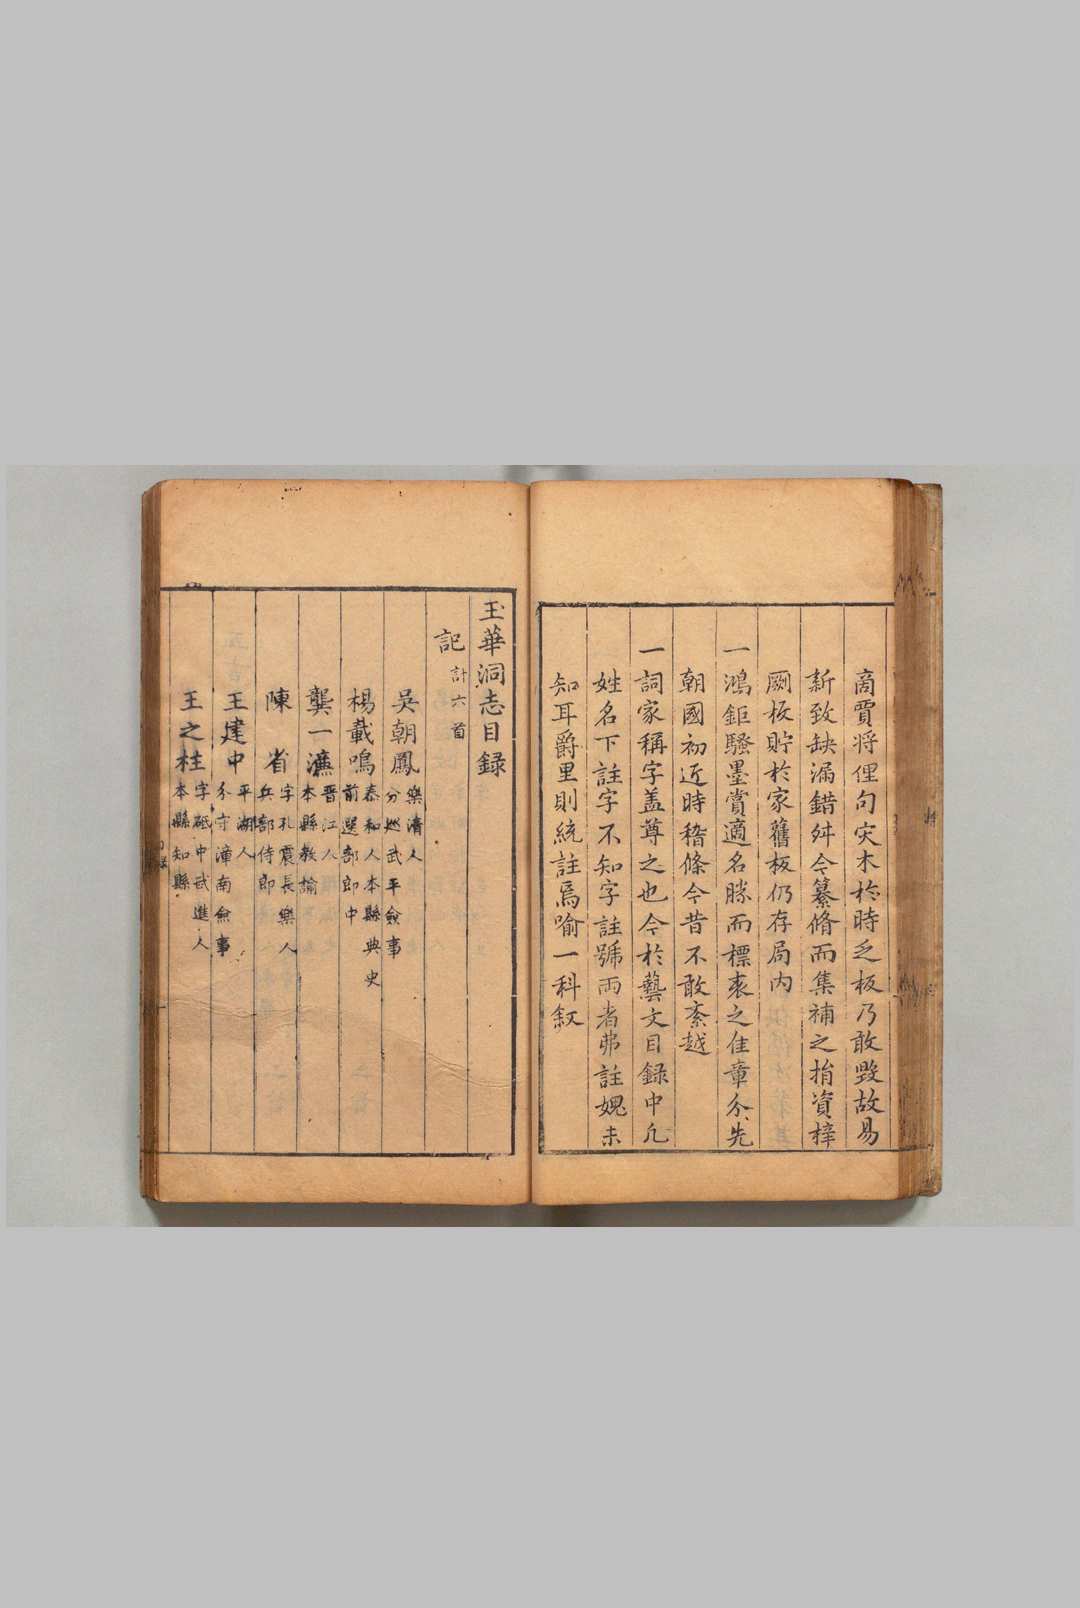 商賈将俚句灾木於時乏板乃敢毀故易
新致缺漏錯舛今纂脩而集補之捐資梓
厥板貯於家舊板仍存局内
一鴻鉅騷墨賞適名勝而標衷之佳章分先
朝國初近時稽條今昔不敢紊越
一詞家稱字盖尊之也今於藝文目録中凡
姓名下註字不知字註號兩者弗註媿未
知耳爵里則統註焉喻一科叙
玉華洞志目録
記 計六首
吳朝鳳 樂清人
分巡武平僉事
楊載鳴 泰和人本縣典史
前選部郎中
龔一濂 晋江人
本縣教諭
陳省 字孔震長樂人
兵部侍郎
王建中 平湖人
分守漳南僉事
王之柱 字砥中武進人
本縣知縣